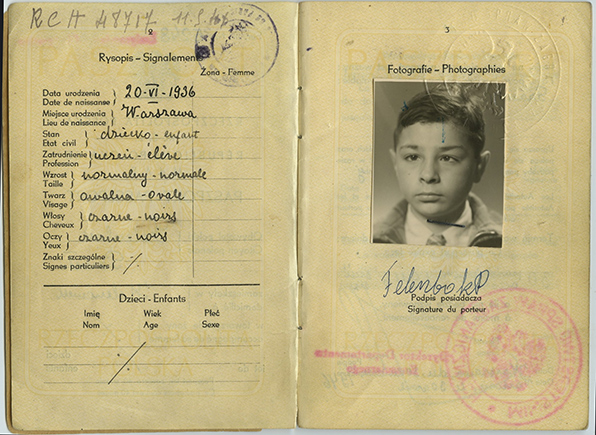 RCH 48717 11.5.
2
Rysopis – Signalement
Zona - Femme
Data urodzenia } 20-VI-1936
Date de naissance
Miejsce urodzenia } Warszawa
Lieu de naissance
Stan } dziecko - enfant
Etat civil
Zatrudnienie } uczeń - élève
Profession
Wzrost } normalny - normale
Taille
Twarz } owalna - ovale
Visage
Włosy } czarne - noirs
Cheveux
Oczy } czarne - noirs
Yeux
Znaki szczególne }
Signes particuliers
Dzieci - Enfants
Imię Wiek Płeć
Nom Age Sexe
RZECZPOSPOLITA
POLSKA
3
Fotografie – Photographies
Podpis posiadacza
Signature du porteur
Dyrektor Departamentu
Konsularnego